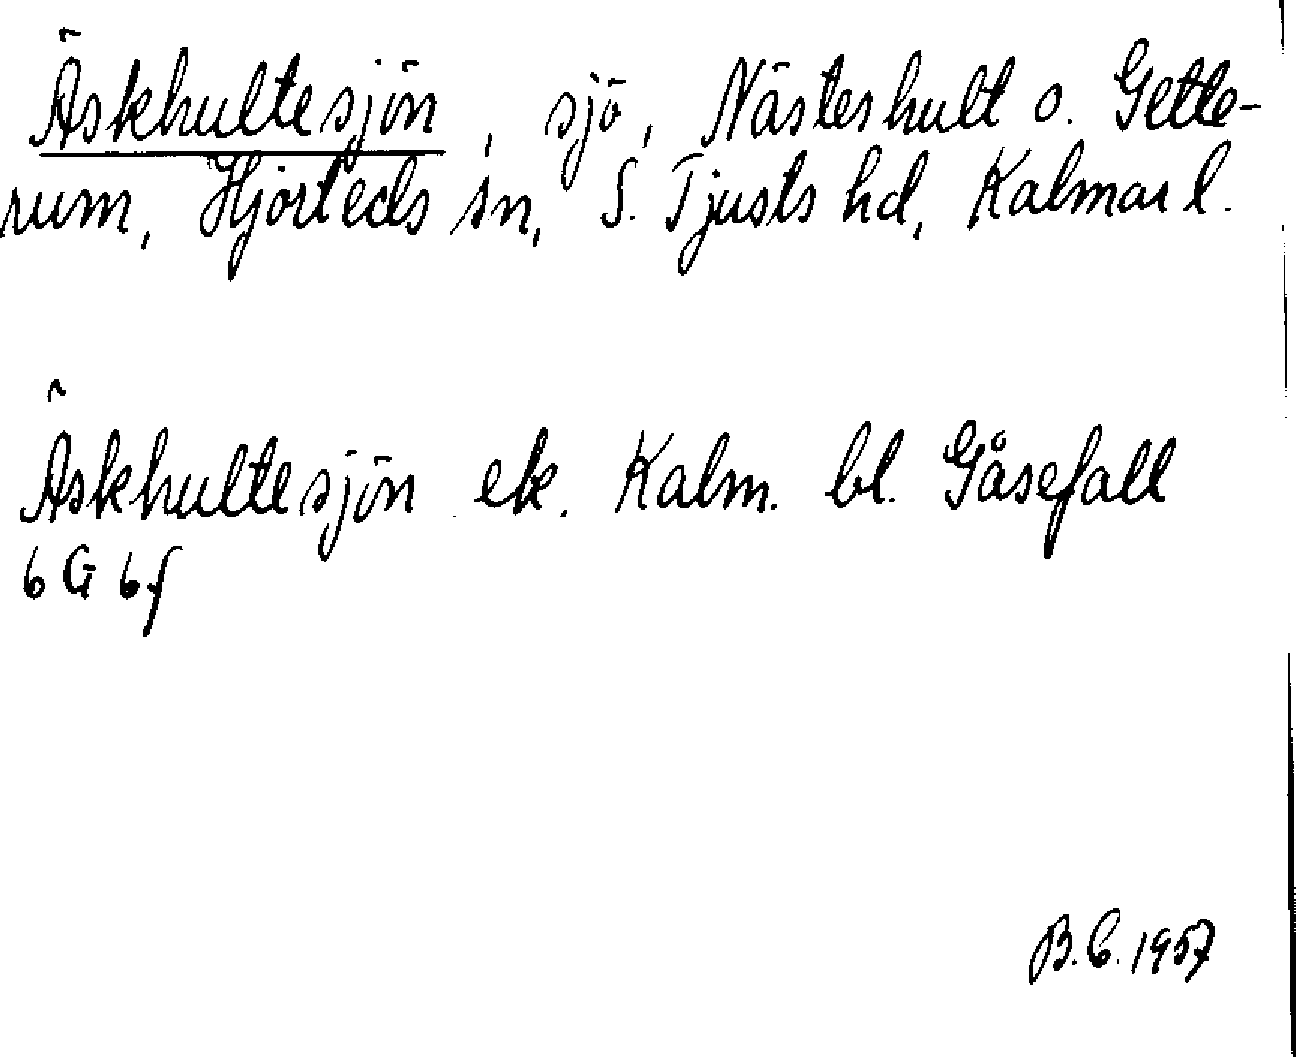 Äskhultesjön, sjö, Näshult o. Gette-
rum, Hjorteds sn, S. Tjusts hd, Kalmar l.
Äskhultesjön ek. Kalm. bl. Gåsefall
6 G 6f
B.C. 1957